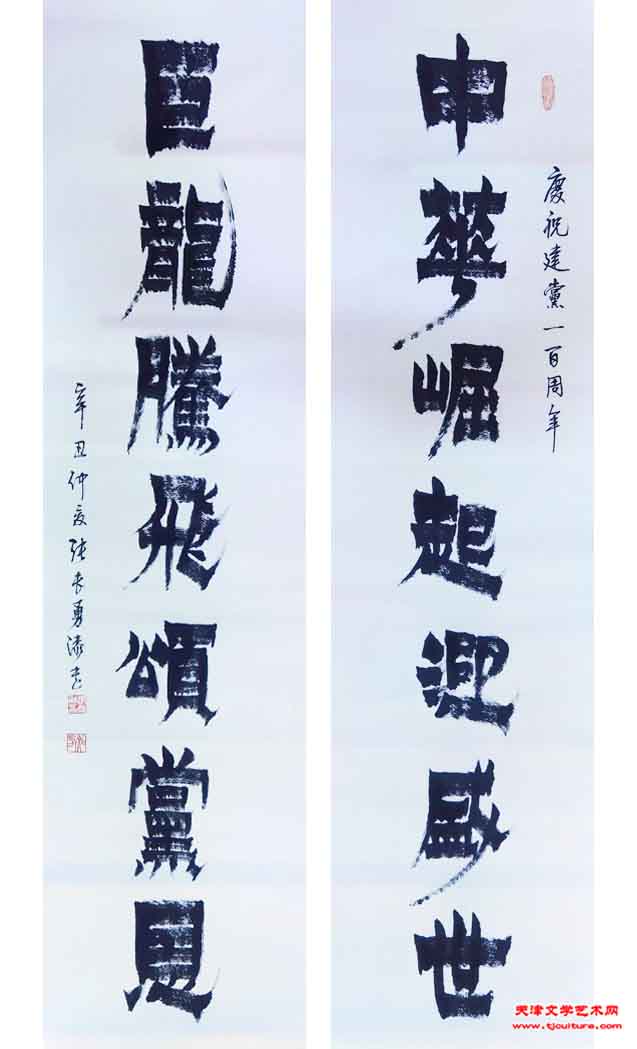 慶祝建黨一百周年
中華崛起迎盛世
巨龍騰飛頌黨恩
辛丑仲夏張長勇漆書
天津文学艺术网
www.tjculture.com